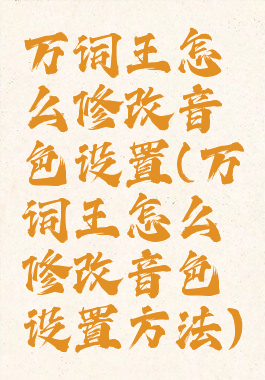 万词王怎
么修改音
色设置(万
词王怎么
修改音色
设置方法)